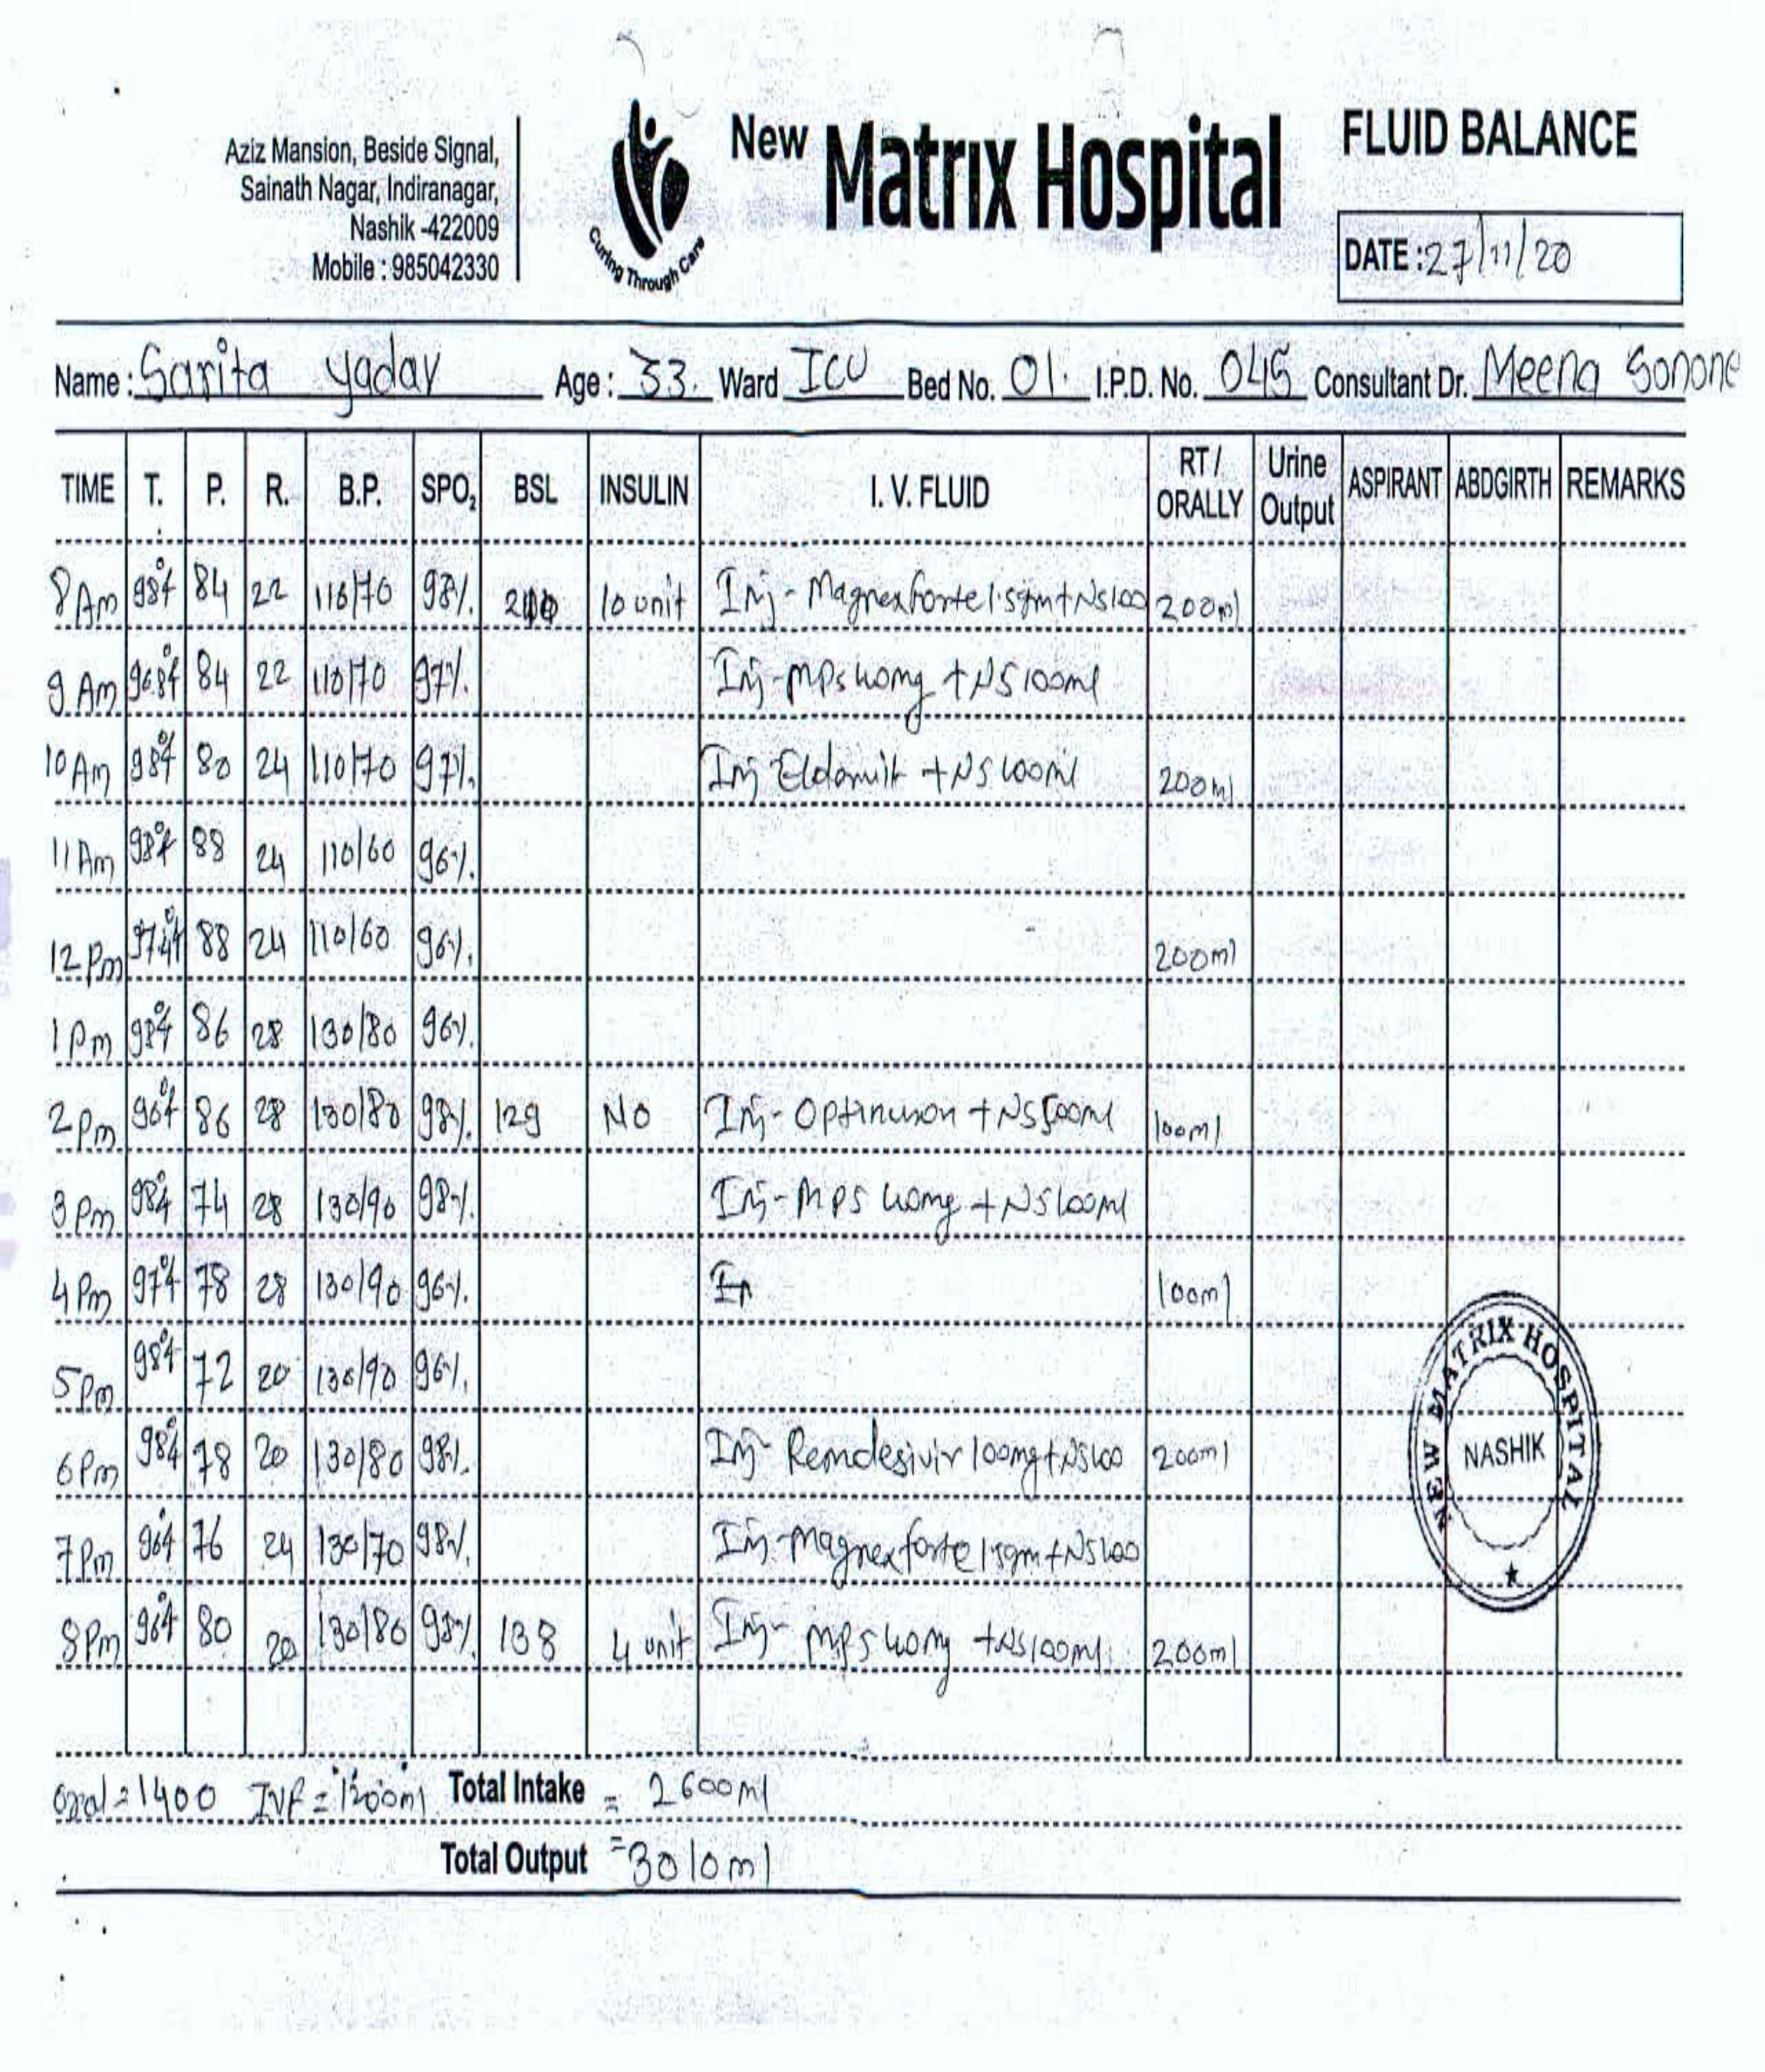 Aziz Mansion, Beside Signal,
Sainath Nagar, Indiranagar,
Nashik -422009
Mobile : 985042330
Curing Through Care
New Matrix Hospital
FLUID BALANCE
DATE : 27/11/20
Name : Sarita Yadav Age : 33. Ward ICU Bed No. 01. I.P.D. No. 045 Consultant Dr. Meena Sonone
TIME T. P. R. B.P. SPO2 BSL INSULIN I. V. FLUID RT / ORALLY Urine Output ASPIRANT ABDGIRTH REMARKS
8 Am 98°f 84 22 110/70 98% 10 unit Inj - Magnexforte 1.5gm + NS100 200ml
9 Am 96.8°f 84 22 110/70 97% Inj - MPS 40mg + NS 100ml
10 Am 98°f 80 24 110/70 97% Inj + NS 100ml 200ml
11 Am 98°f 88 24 110/60 96%
12 Pm 97.4°f 88 24 110/60 96% 200ml
1 Pm 98°f 86 28 130/80 96%
2 Pm 96°f 86 28 130/80 98% 129 NO Inj - + NS 500ml 100ml
3 Pm 98°f 74 28 130/90 98% Inj - MPS 40mg + NS 100ml
4 Pm 97°f 78 28 130/90 96% 100ml
5 Pm 98°f 72 20 130/90 96%
6 Pm 98°f 78 20 130/80 98% Inj - Remdesivir 100mg + NS100 200ml
7 Pm 96°f 76 24 130/70 98% Inj - Magnexforte 1.5gm + NS100
8 Pm 96°f 80 20 130/80 98% 138 4 unit Inj - MPS 40mg + NS 100ml 200ml
NEW MATRIX HOSPITAL
NASHIK
oral = 1400 IVF = 1200ml Total Intake = 2600ml
Total Output = 3010ml